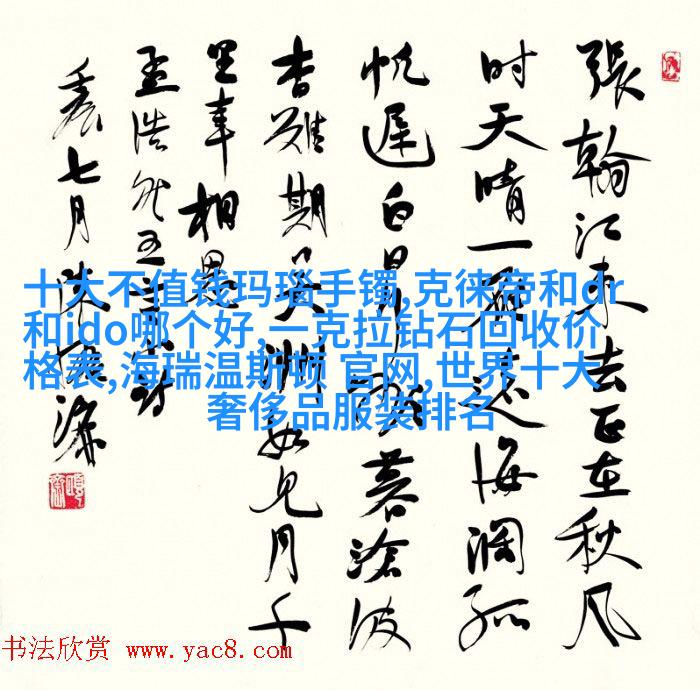 張翰江东去正在秋风
时天晴一雁遠海阔孤
帆遲白日行欲暮滄波
杳難期吴洲如见月千
里幸相思
孟浩然五言诗
七月陈振濂
十大不值钱玛瑙手镯,克徕帝和dr
和ido哪个好,一克拉钻石回收价
格表,海瑞温斯顿 官网,世界十大
奢侈品服装排名
书法欣赏 www.yac8.com